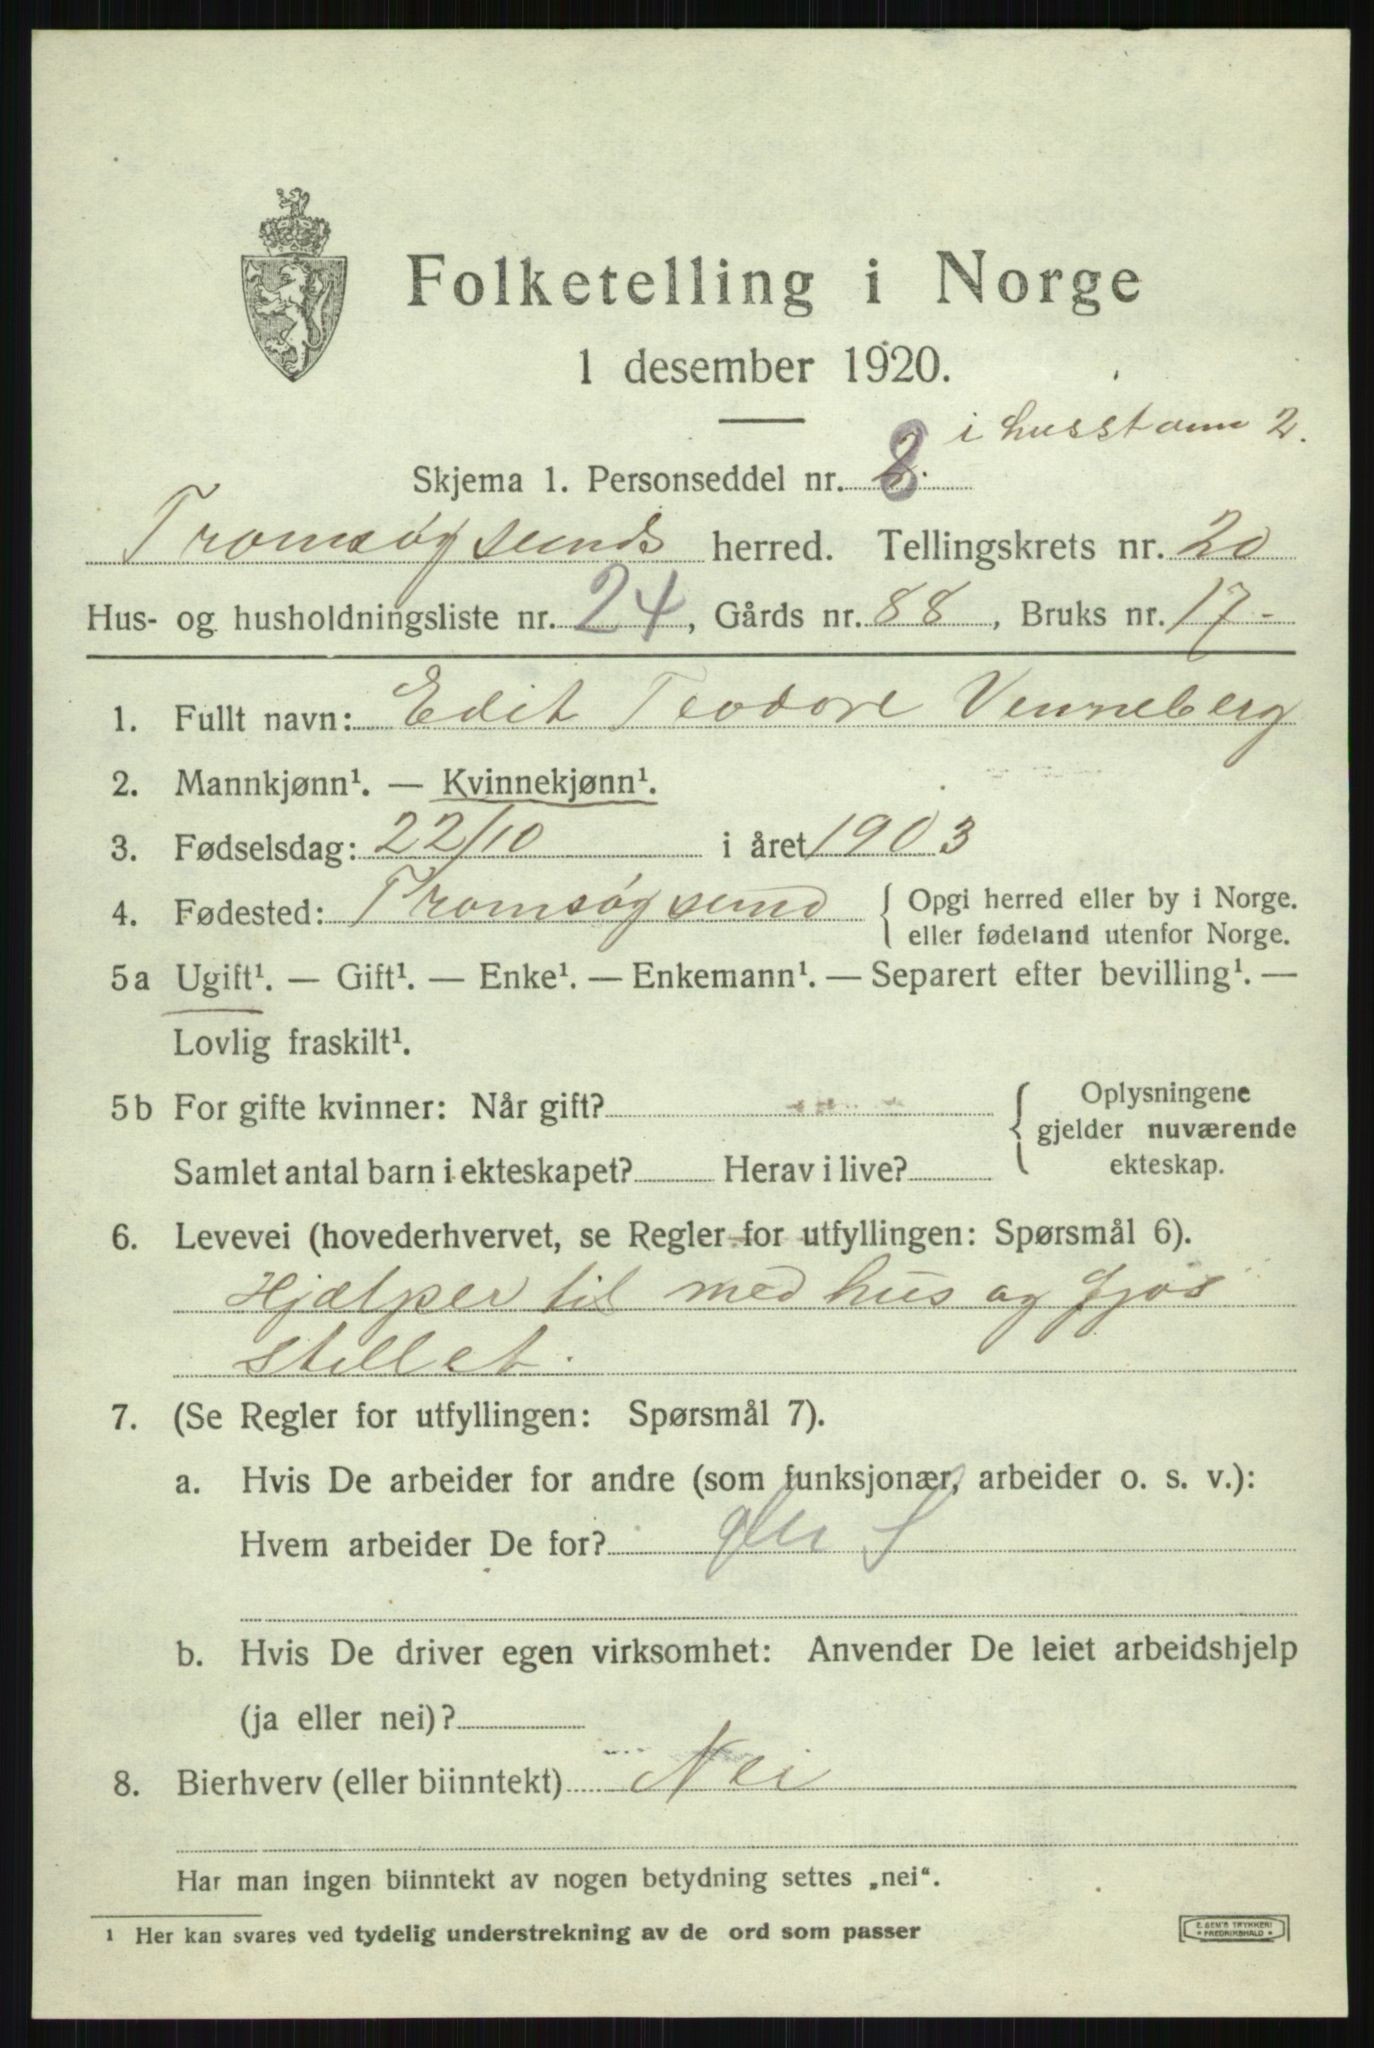 Folketelling i Norge
1 desember 1920.
i husstann 2.
Skjema 1. Personseddel nr. 8
Tromsøysunds herred. Tellingskrets nr. 20
Hus- og husholdningsliste nr. 24, Gårds nr. 88, Bruks nr. 17-
1. Fullt navn: Edit Teodore Venneberg
2. Mannkjønn¹. — Kvinnekjønn¹.
3. Fødselsdag: 22/10 i året 1903
4. Fødested: Tromsøysund { Opgi herred eller by i Norge.
eller fødeland utenfor Norge.
5a Ugift¹. — Gift¹. — Enke¹. — Enkemann¹. — Separert efter bevilling¹. —
Lovlig fraskilt¹.
5b For gifte kvinner: Når gift? { Oplysningene
gjelder nuværende
Samlet antal barn i ekteskapet? Herav i live? ekteskap.
6. Levevei (hovederhvervet, se Regler for utfyllingen: Spørsmål 6).
Hjælper til med hus og fjøs
stellet.
7. (Se Regler for utfyllingen: Spørsmål 7).
a. Hvis De arbeider for andre (som funksjonær, arbeider o. s. v.):
Hvem arbeider De for?
b. Hvis De driver egen virksomhet: Anvender De leiet arbeidshjelp
(ja eller nei)?
8. Bierhverv (eller biinntekt) Nei
Har man ingen biinntekt av nogen betydning settes „nei“.
¹ Her kan svares ved tydelig understrekning av de ord som passer
E. SEM'S TRYKKERI
* FREDRIKSHALD *